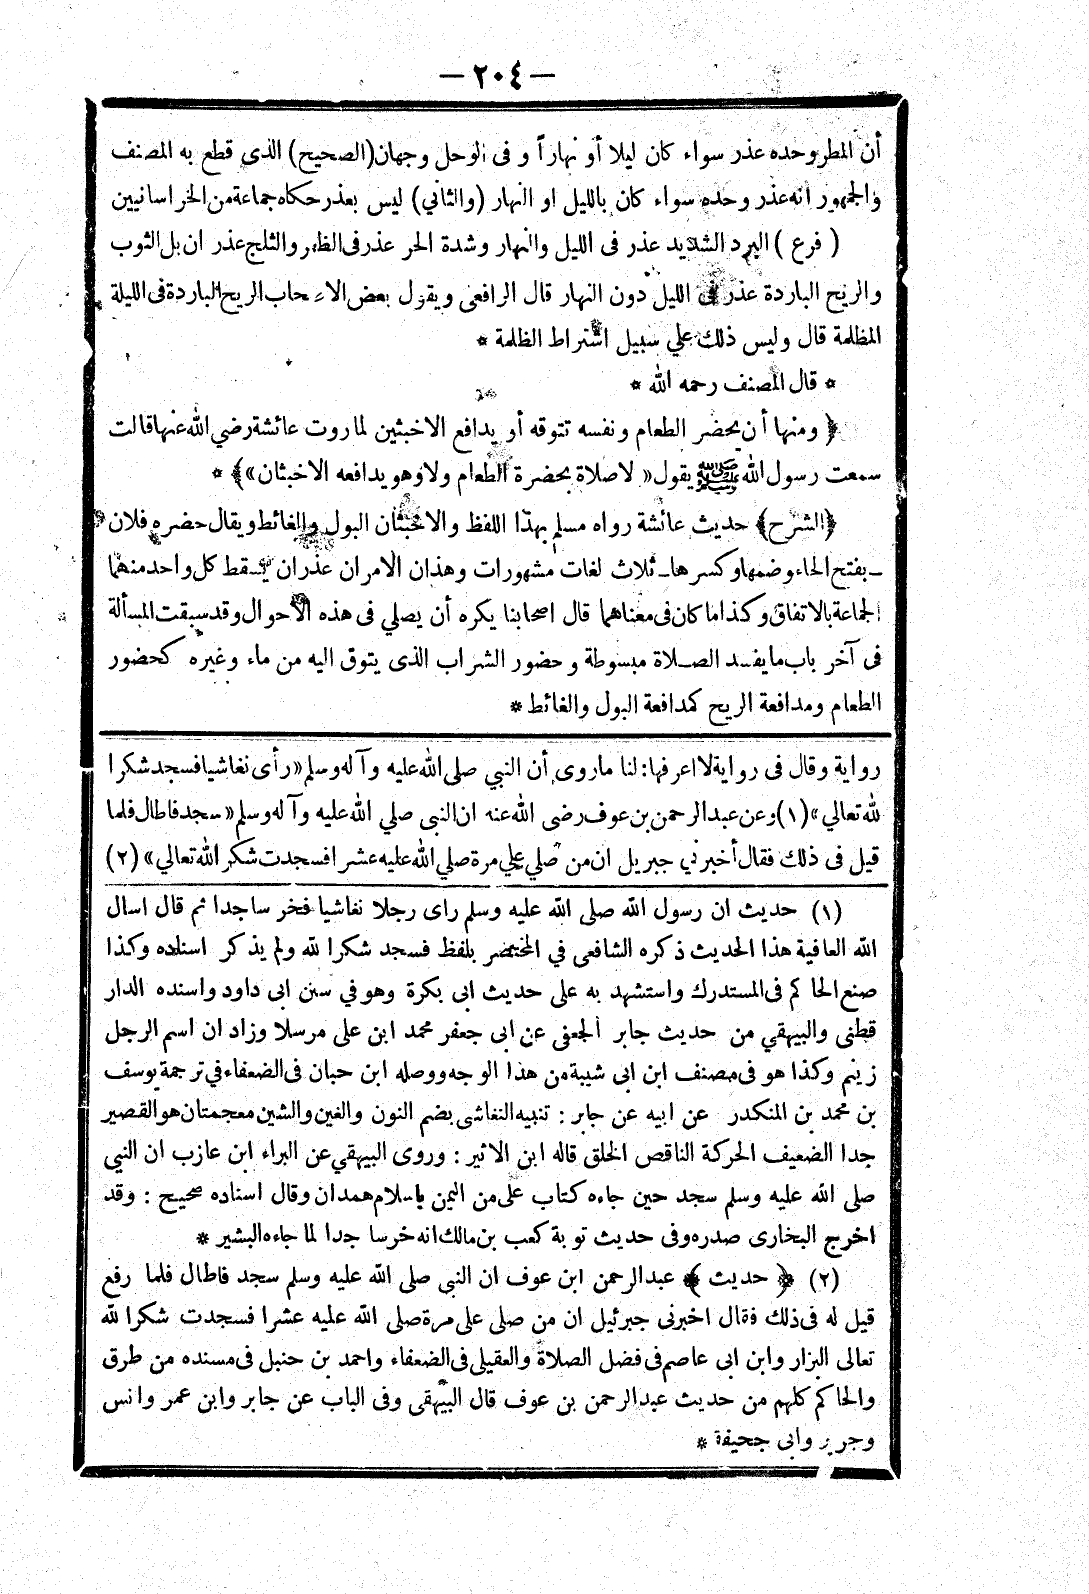 — ٢٠٤ —
أن المطر وحده عذر سواء كان ليلا أو نهاراً و فى الوحل وجهان (الصحيح) الذى قطع به المصنف
والجمهور انه عذر وحده سواء كان بالليل او النهار (والثانى) ليس بعذر حكاه جماعة من الخراسانيين
( فرع ) البرد الشديد عذر فى الليل والنهار وشدة الحر عذر فى الظهر والثلج عذر ان بل الثوب
والريح الباردة عذر فى الليل دون النهار قال الرافعى ويقول بعض الاصحاب الريح الباردة فى الليلة
المظلمة قال وليس ذلك علي سبيل اشتراط الظلمة *
* قال المصنف رحمه الله *
﴿ ومنها أن يحضر الطعام ونفسه تتوقه أو يدافع الاخبثين لما روت عائشة رضي الله عنها قالت
سمعت رسول الله ﷺ يقول « لا صلاة بحضرة الطعام ولا وهو يدافعه الاخبثان »﴾ *
﴿الشرح﴾ حديث عائشة رواه مسلم بهذا اللفظ والاخبثان البول والغائط ويقال حضره فلان
ـ بفتح الحاء وضمها وكسرها ـ ثلاث لغات مشهورات وهذان الامران عذران يسقط كل واحد منهما
الجماعة بالاتفاق وكذا ما كان فى معناهما قال اصحابنا يكره أن يصلي فى هذه الاحوال وقد سبقت المسألة
فى آخر باب ما يفسد الصلاة مبسوطة و حضور الشراب الذى يتوق اليه من ماء وغيره كحضور
الطعام ومدافعة الريح كمدافعة البول والغائط *
رواية وقال فى رواية لا اعرفها: لنا ما روى أن النبي صلى الله عليه وآله وسلم «رأى نغاشيا فسجد شكرا
لله تعالي» (١) وعن عبد الرحمن بن عوف رضى الله عنه ان النبى صلي الله عليه وآله وسلم «سجد فاطال فلما
قيل فى ذلك فقال أخبرني جبريل ان من صلي علي مرة صلي الله عليه عشرا فسجدت شكر الله تعالي» (٢)
(١) حديث ان رسول الله صلى الله عليه وسلم راى رجلا نغاشيا فخر ساجدا ثم قال اسال
الله العافية هذا الحديث ذكره الشافعى في المختصر بلفظ فسجد شكرا لله ولم يذكر اسناده وكذا
صنع الحاكم فى المستدرك واستشهد به على حديث ابى بكرة وهو في سنن ابى داود واسنده الدار
قطنى والبيهقي من حديث جابر الجعفى عن ابى جعفر محمد ابن على مرسلا وزاد ان اسم الرجل
زنيم وكذا هو فى مصنف ابن ابى شيبة من هذا الوجه ووصله ابن حبان فى الضعفاء في ترجمة يوسف
بن محمد بن المنكدر عن ابيه عن جابر : تنبيه النغاشى بضم النون والغين والشين معجمتان هو القصير
جدا الضعيف الحركة الناقص الخلق قاله ابن الاثير : وروى البيهقي عن البراء ابن عازب ان النبي
صلى الله عليه وسلم سجد حين جاءه كتاب على من اليمن باسلام همدان وقال اسناده صحيح : وقد
اخرج البخارى صدره وفى حديث توبة كعب بن مالك انه خر ساجدا لما جاءه البشير *
(٢) ﴿ حديث ﴾ عبد الرحمن ابن عوف ان النبى صلى الله عليه وسلم سجد فاطال فلما رفع
قيل له فى ذلك فقال اخبرنى جبرئيل ان من صلى على مرة صلى الله عليه عشرا فسجدت شكرا لله
تعالى البزار وابن ابى عاصم فى فضل الصلاة والعقيلى فى الضعفاء واحمد بن حنبل فى مسنده من طرق
والحاكم كلهم من حديث عبد الرحمن بن عوف قال البيهقى وفى الباب عن جابر وابن عمر وانس
وجرير وابى جحيفة *